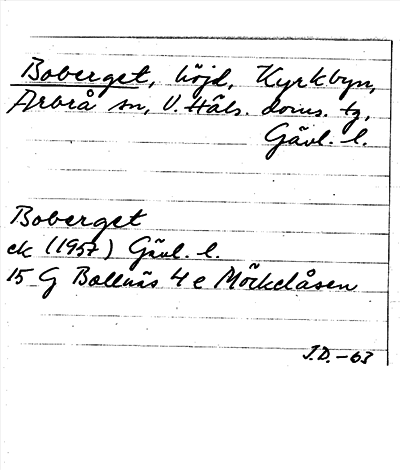 Boberget, höjd, Kyrkbyn,
Arbrå sn, V. Häls. doms. tg,
Gävl. l.
Boberget
ek (1957) Gävl. l.
15 G Bollnäs 4 e Möckelåsen
J.D. -63